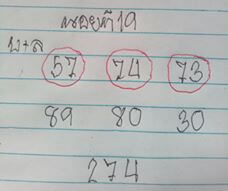 หอยที19
บ+ล
57 74 73
89 80 30
274